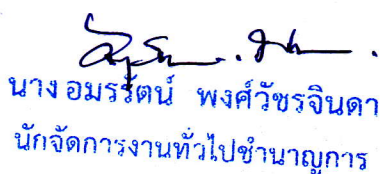 นางอมรรัตน์ พงศ์วัชรจินดา
นักจัดการงานทั่วไปชำนาญการ